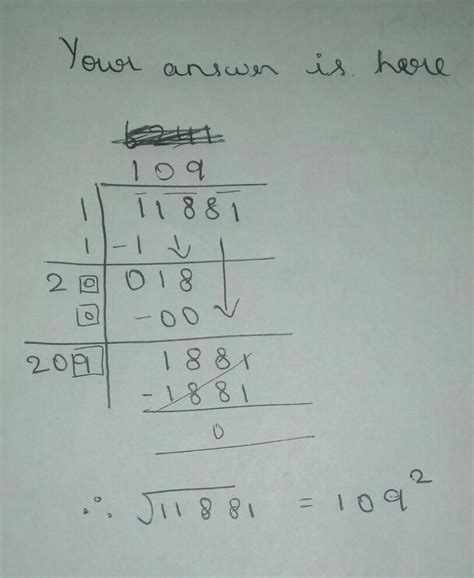 Your answer is here
109
1 11881
1 -1
20 018
0 -00
209 1881
-1881
0
∴ √11881 = 109²